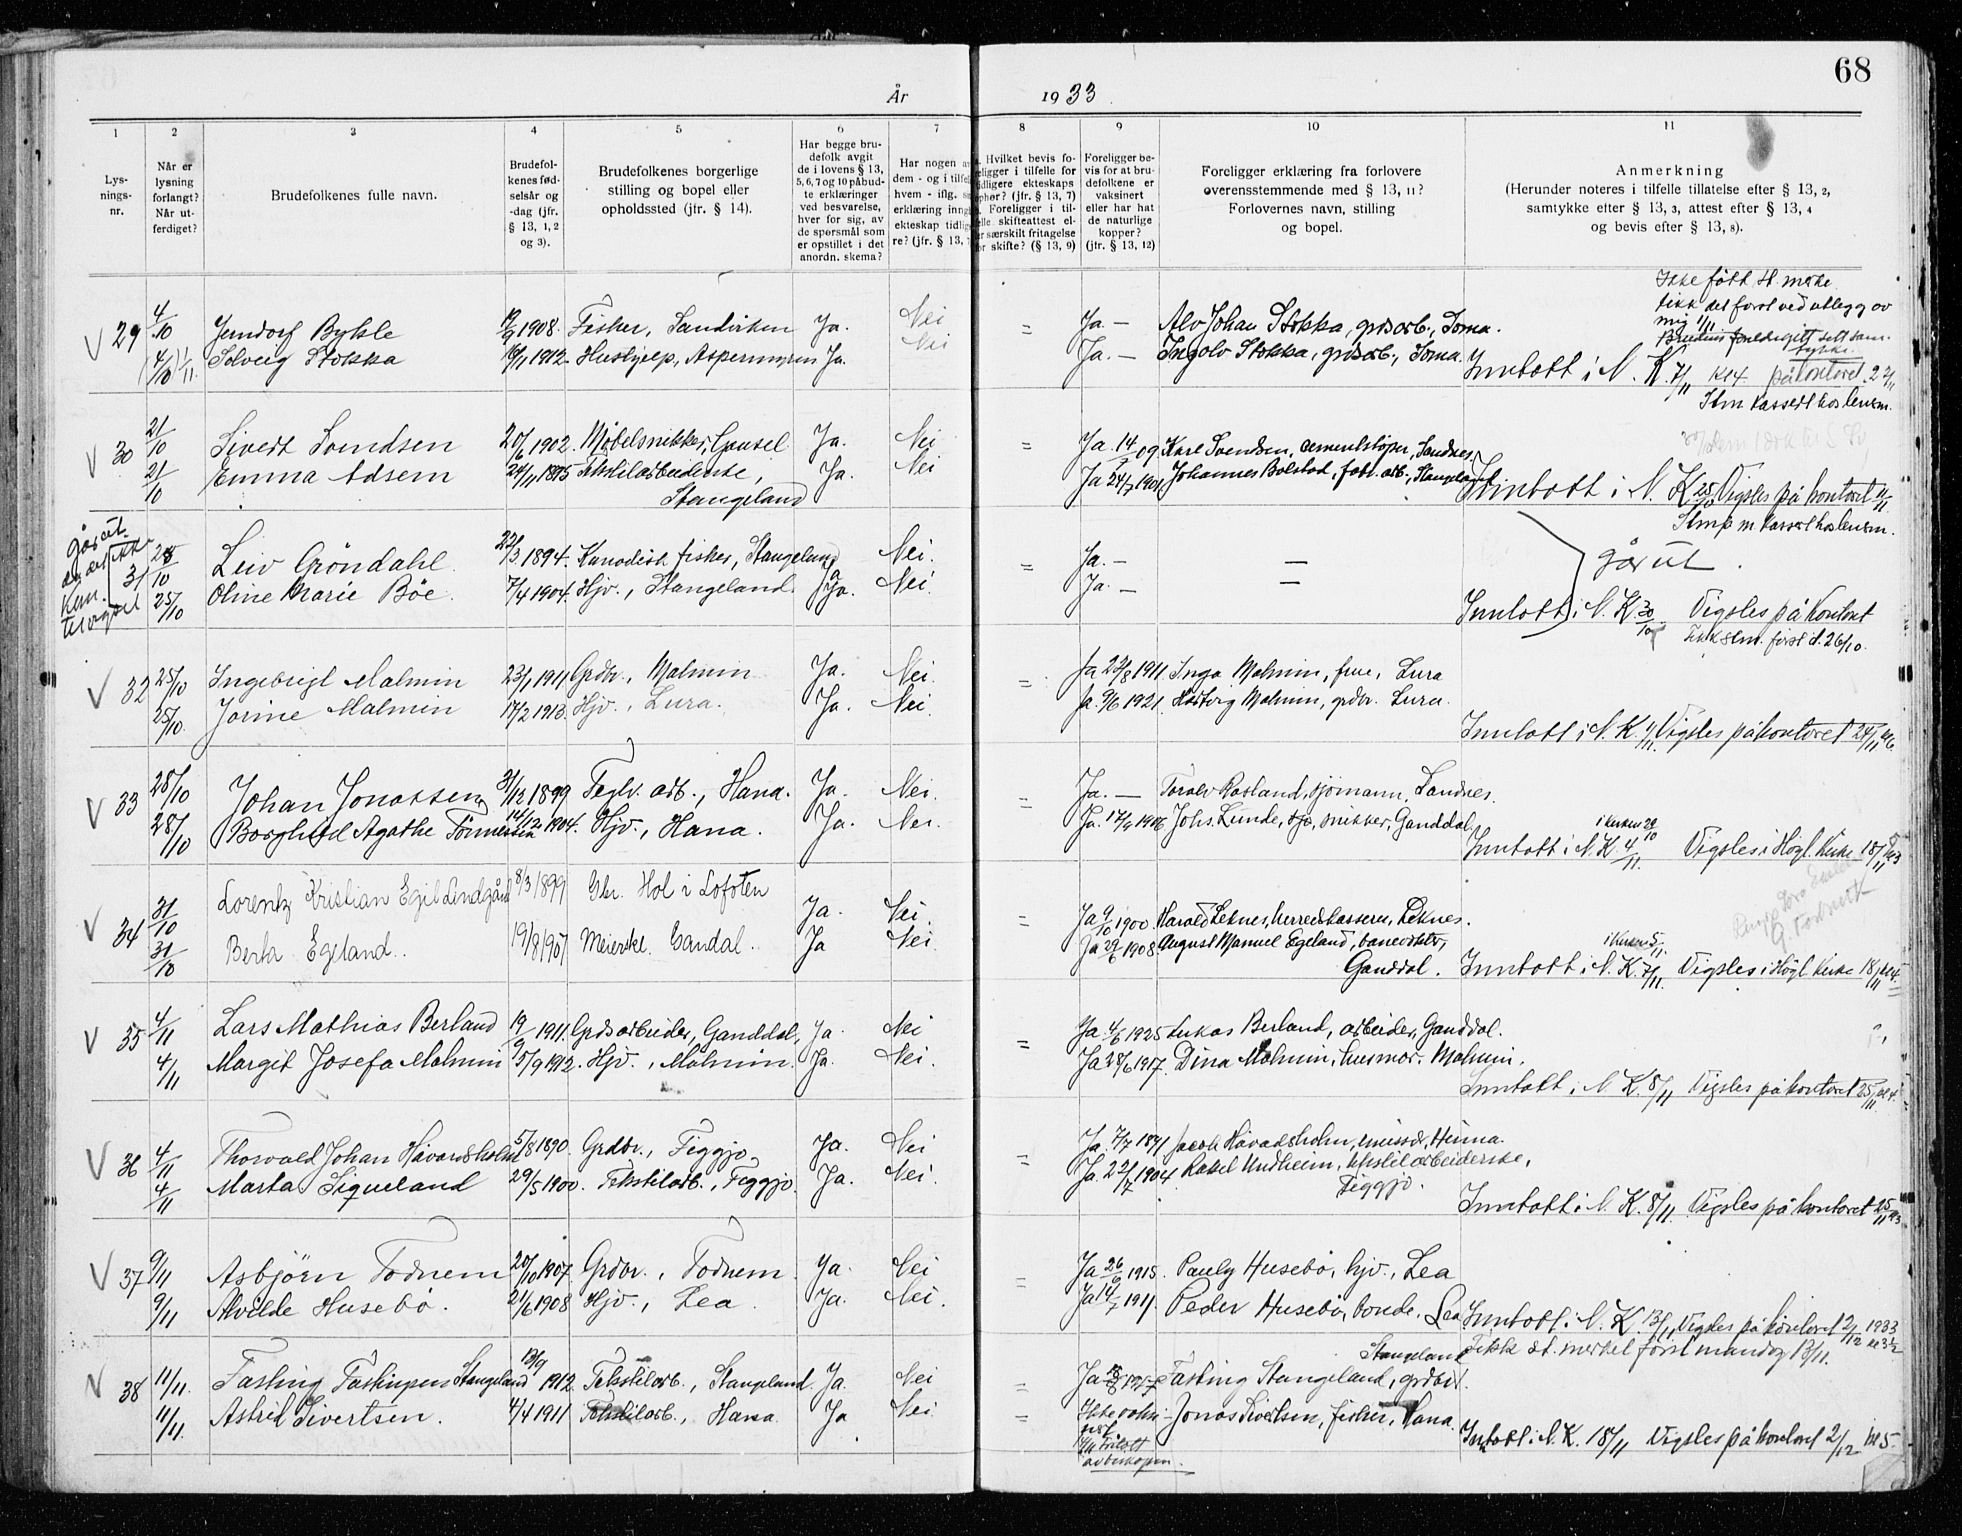 68
År 1933
1 2 3 4 5 6 7 8 9 10 11
Lys-
nings-
nr.
Når er
lysning
forlangt?
Når ut-
ferdiget?
Brudefolkenes fulle navn.
Brudefol-
kenes fød-
selsår og
-dag (jfr.
§ 13, 1, 2
og 3).
Brudefolkenes borgerlige
stilling og bopel eller
opholdssted (jfr. § 14).
Har begge bru-
defolk avgit
de i lovens § 13,
5, 6, 7 og 10 påbud-
te erklæringer
ved besvarelse,
hver for sig, av
de spørsmål som
er opstillet i det
anordn. skema?
Har nogen a
dem - og i tilfel
hvem - iflg. s
erklæring inng
ekteskap tidlig
re? (jfr. § 13,
Hvilket bevis fo-
religger i tilfelle for
tidligere ekteskaps
ophør? (jfr. § 13, 7)
Foreligger i til-
felle skifteattest el-
ler særskilt fritagelse
for skifte? (§ 13, 9)
Foreligger be-
vis for at bru-
defolkene er
vaksinert
eller har hat
de naturlige
kopper?
(jfr. § 13, 12)
Foreligger erklæring fra forlovere
overensstemmende med § 13, 11?
Forlovernes navn, stilling
og bopel.
Anmerkning
(Herunder noteres i tilfelle tillatelse efter § 13, 2,
samtykke efter § 13, 3, attest efter § 13, 4
og bevis efter § 13, 8).
Ikke fått St. merke
fikk det først ved utlegg av
mig 1/11
V 29 4/10 Jerndorf Bykle 19/9 1908. Fisker, Sandviken Ja. Nei = Ja. — Alv Johan Stokka, grdsarb., Soma.
(4/10) 1/11. Solveig Stokka 16/1 1912. Hushjelp, Ja. Nei Ja. — Ingolv Stokka, grdsarb., Soma.
Inntatt i N. K. 7/11 kl 4 på kontoret
Stm kassert hos lensm.
V 30 21/10 Sivert Svendsen 20/6 1902. Møbelsnikker, Gausel Ja. Nei = Ja 14/ 09 Karl Svendsen, cementstøper, Sandnes.
21/10 Emma Adsem 24/11 Tekstilarbeiderske, Ja. Nei Ja 24/7 1901. Johannes Bolstad, fabr. arb., Stangeland
Stangeland
Inntatt i N. K. 25/10 Vigsles på kontoret 11/11
Stmp m kassert hos lensm.
går ut
31 28/10 Leiv Gröndahl. 22/3 1894. fisker, Stangeland Ja Nei. = Ja. — —
25/10 Oline Marie Böe. 7/4 1904. Hjv., Stangeland. Ja. Nei. Ja. — —
går ut.
Inntatt i N. K. 30/10 Vigsles på kontoret
Fikk stm. først d. 26/10.
V 32 25/10 Ingebrigt Malmin 23/1 1911 Grdbr., Malmin Ja. Nei. = Ja 22/8 1911. Inga Malmin, frue, Lura
25/10. Jorine Malmin 17/2 1913. Hjv., Lura. Ja. Nei. Ja. 9/6 1921. Hartvig Malmin, grdbr. Lura.
Inntatt i N. K. 1/11. Vigsles på kontoret 24/11 kl 6.
V 33 28/10 Johan Jonassen 31/12 1899 Teglv. arb., Hana. Ja. Nei. = Ja. — Toralv Rosland, sjömann, Sandnes.
28/10 Borghild Agathe Tönnessen 14/12 1904. Hjv., Hana. Ja. Nei. Ja. 17/9 1906 Johs. Lunde, snikker, Ganddal.
i kirken 29/10
Inntatt i N. K. 4/11. Vigsles i Högl. Kirke 18/11
V 34 31/10 Lorentz Kristian Egil Lindgård 8/3 1899 Gbr. Hol i Lofoten Ja. Nei. = Ja 9/10 1900 Harald Leknes, herredskasserer, Leknes.
31/10 Berta Egeland. 19/8 1907 Meierske. Gandal. Ja Nei. Ja 29/6 1908. August Manuel Egeland, banevokter,
Ganddal.
i kirken 5/11.
Inntatt i N. K. 7/11. Vigsles i Högl Kirke 18/11 kl 4.
V 35 4/11 Lars Mathias Berland 19/9 1911. Grdsarbeider, Ganddal, Ja. Nei = Ja 4/6 1925 Lukas Berland, arbeider, Ganddal.
4/11 Margit Josefa Malmin 5/9 1912. Hjv., Malmin. Ja. Nei. Ja 28/6 1917. Dina Malmin, husmor. Malmin.
Inntatt i N. K. 8/11 Vigsles på kontoret 25/11 kl 4.
V 36 4/11 Thorvald Johan Håvardsholm 5/8 1890. Grdbr., Figgjo Ja. Nei = Ja. 7/7 1891 Jacob Håvardsholm, emissær, Heima.
4/11 Marta Siqueland 29/5 1900. Tekstilarb., Figgjo. Ja. Nei. Ja. 22/7 1904 Rakel Undheim, tekstilarbeiderske,
Figgjo.
Inntatt i N. K. 8/11. Vigsles på kontoret 25/11
V 37 9/11 Asbjörn Todnem 20/10 1907. Grdbr., Todnem. Ja. Nei = Ja 26/6 1915. Pauly Husebö, hjv., Lea
9/11 Alvilde Husebö. 21/6 1908 Hjv., Lea. Ja. Nei. Ja 14/7 1911. Peder Husebö, bonde, Lea
Inntatt i N. K. 13/11 Vigsles på kontoret 2/12 1933
Fikk st. merket först mandag 13/11.
Stangeland
V 38 11/11. Fasting Fastingsen Stangeland 13/9 1912 Tekstilarb., Stangeland. Ja Nei = Ja Fasting Stangeland, grdbr.
11/11. Astrid Sivertsen. 4/4 1911 Tekstilarb., Hana. Ja Nei = Ikke vaksi- Jonas Sivertsen, fisker, Hana
nert
Inntatt i N. K. 18/11 Vigsles på kontoret 2/12 kl 5.